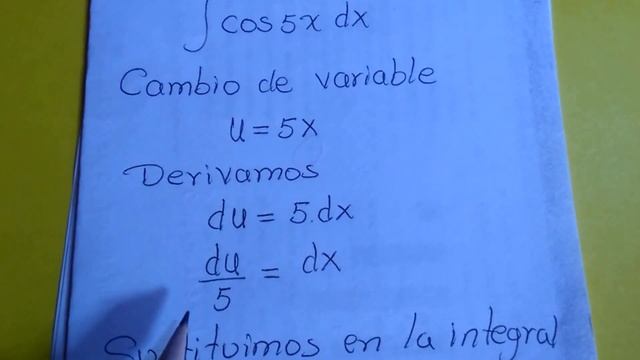 ∫ cos 5x dx
Cambio de variable
u = 5x
Derivamos
du = 5.dx
du/5 = dx
Sustituimos en la integral